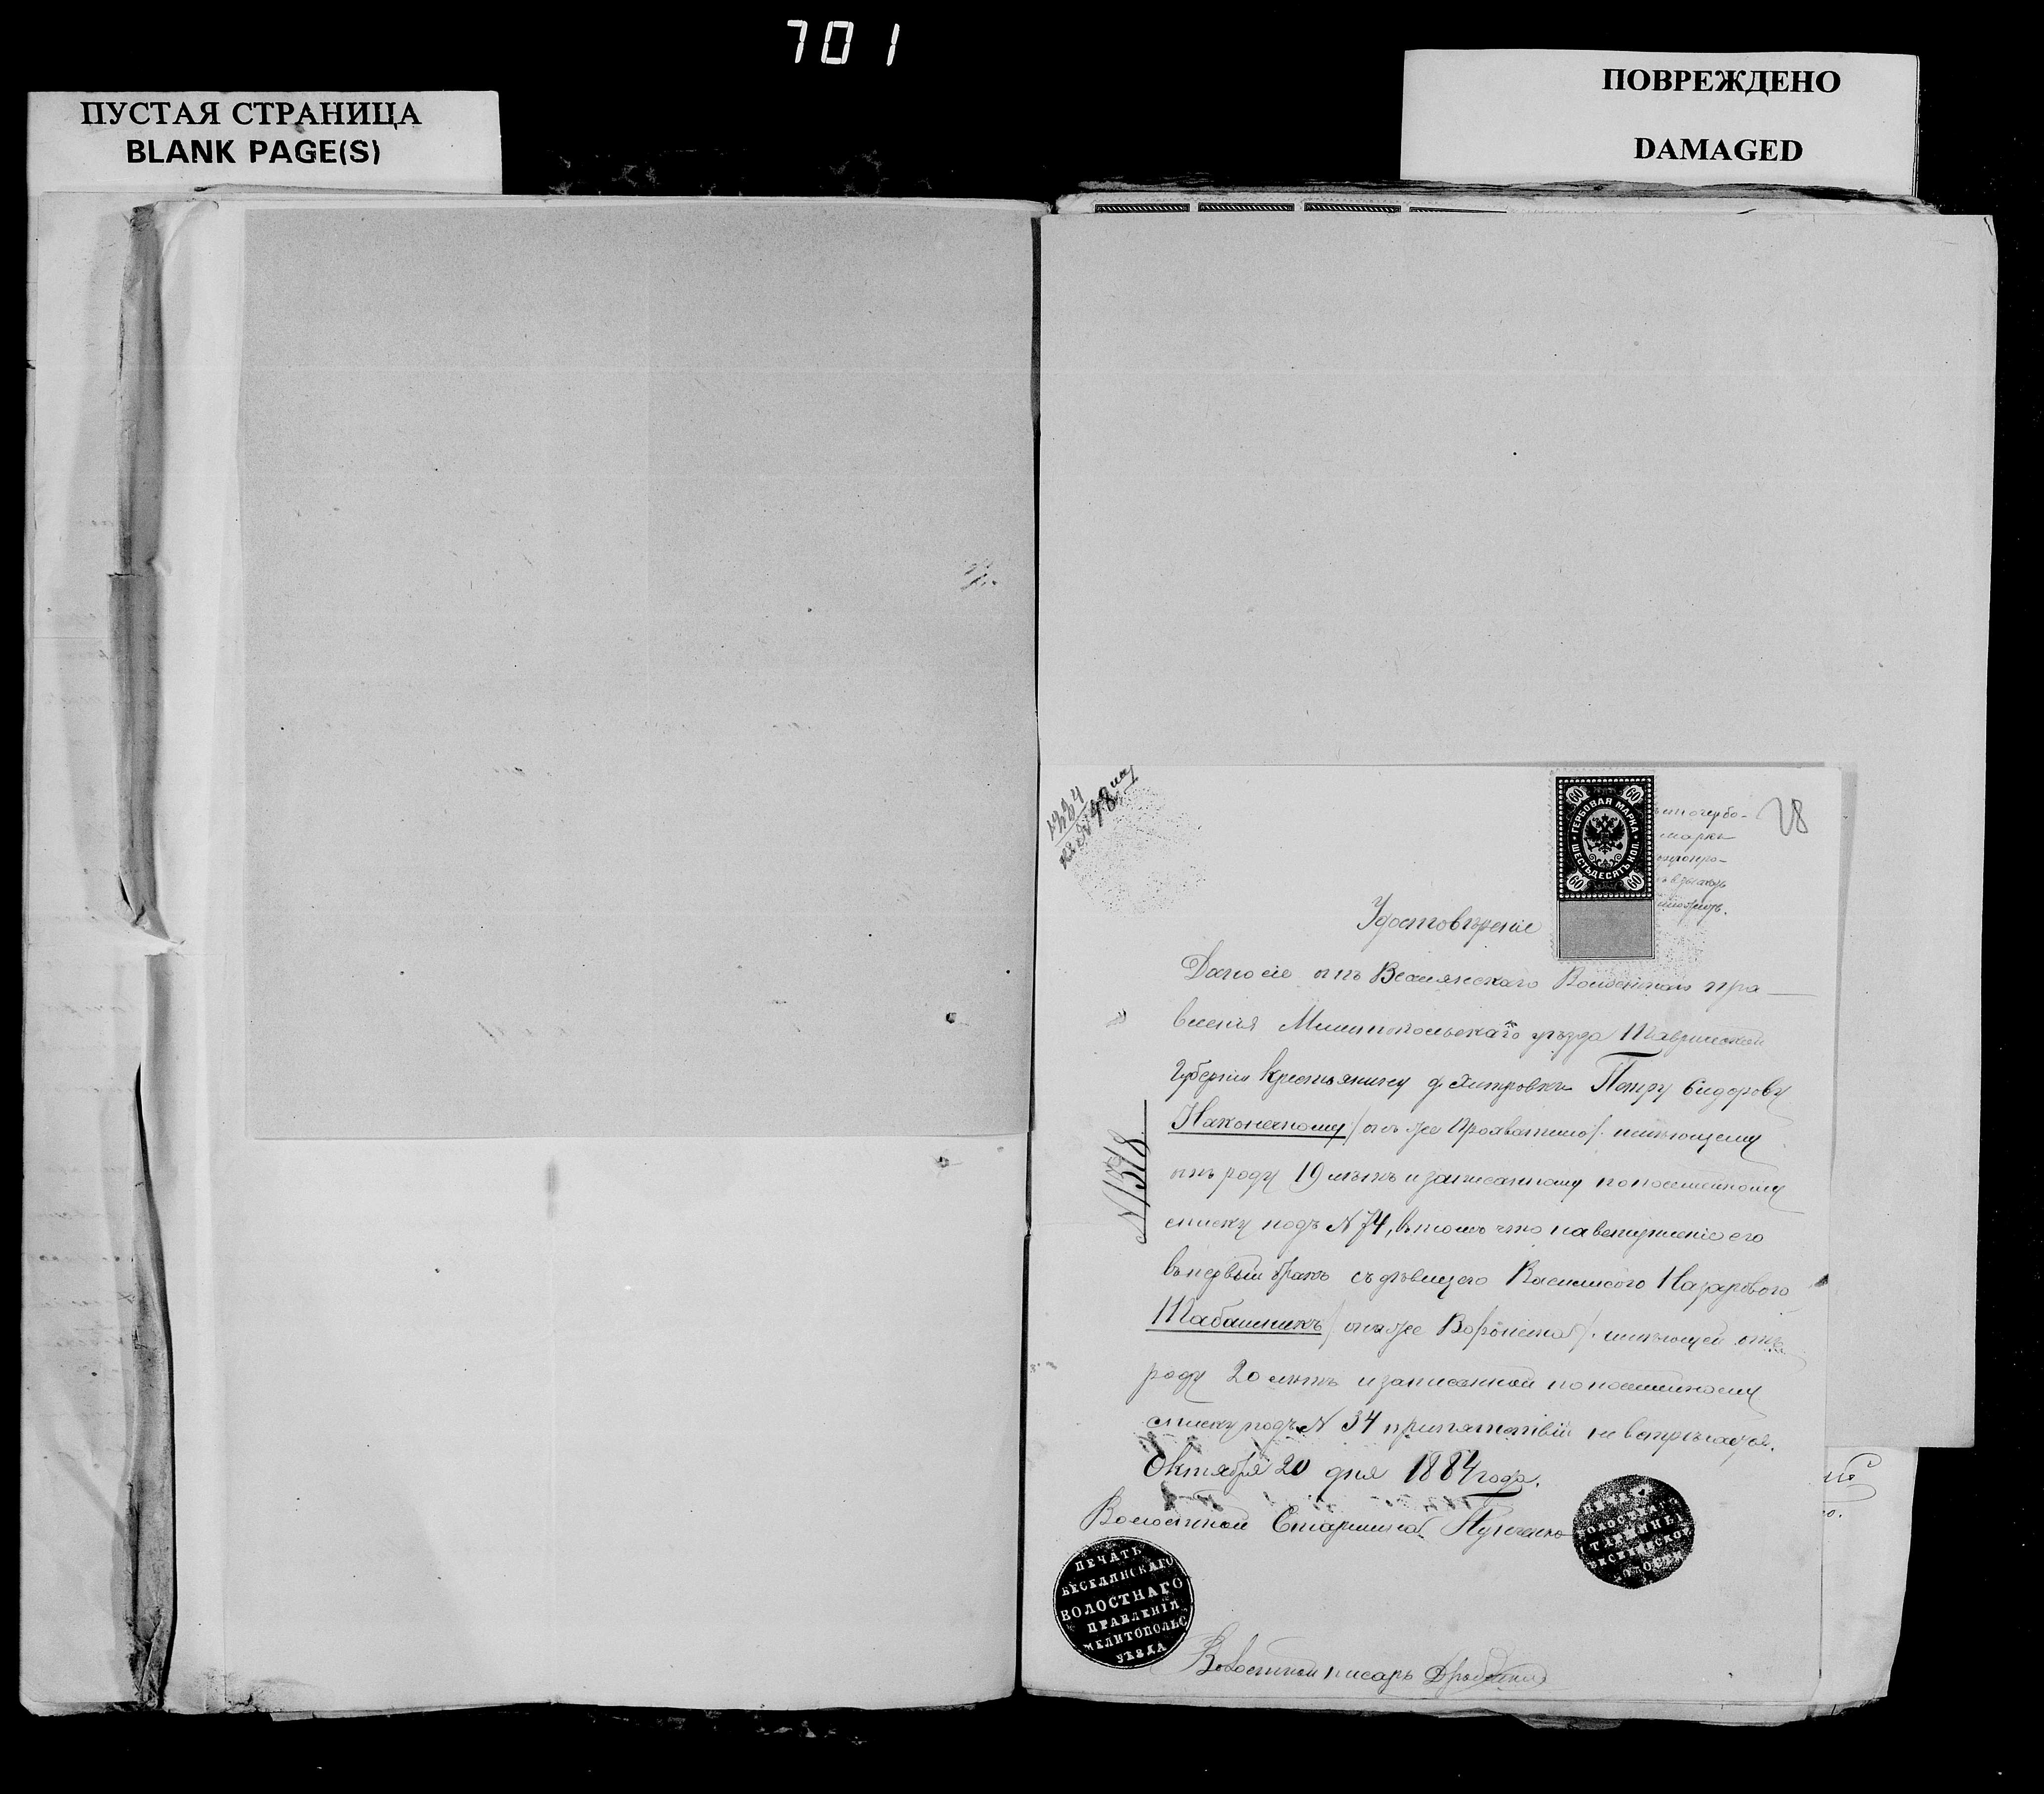 701
ПУСТАЯ СТРАНИЦА
BLANK PAGE(S)
ПОВРЕЖДЕНО
DAMAGED
28
60 60
ГЕРБОВАЯ МАРКА
ШЕСТЬДЕСЯТЪ КОП.
60 60
марки
Удостовѣреніе
Дано сіе отъ Веселянскаго Волостнаго пра-
вленія Мелитопольскаго уѣзда Таврической
Губерніи крестьянину Петру Сидорову
Наконечному / онъ же / имѣющему
отъ роду 19 лѣтъ и записанному по посемейному
списку подъ N 74, въ томъ что на вступленіе его
въ первый бракъ съ дѣвицею Василисою Назаровою
Табашникъ / она же / имѣющей отъ
роду 20 лѣтъ и записанной по посемейному
списку подъ N 34 припятствій не встрѣчается.
Октября 20 дня 1884 года.
N 1578
Волостной Старшина
ПЕЧАТЬ
ВОЛОСТНАГО
СТАРШИНЫ
ВЕСЕЛЯНСКОЙ
ВОЛОСТИ
ПЕЧАТЬ
ВЕСЕЛЯНСКАГО
ВОЛОСТНАГО
ПРАВЛЕНІЯ
МЕЛИТОПОЛЬС
УѢЗДА
Волостной писарь